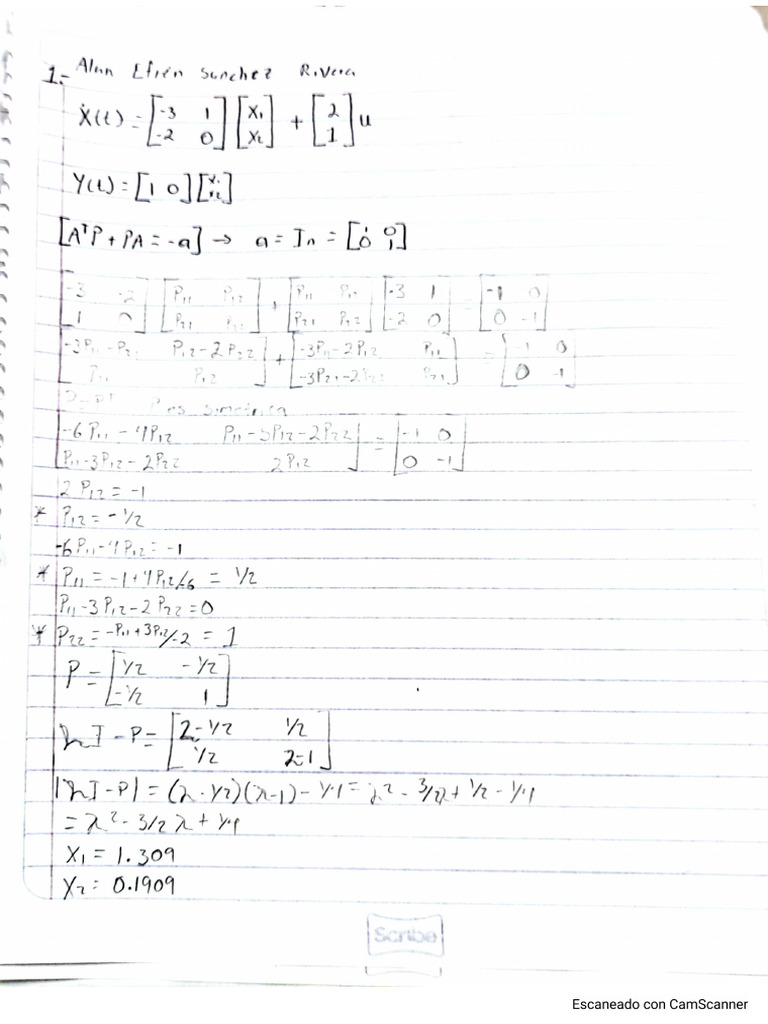 Alan Efrén Sanchez Rivera
1.-
Ẋ(t) = [-3 1; -2 0] [X₁; X₂] + [2; 1] u
Y(t) = [1 0] [X₁; X₂]
[AᵀP + PA = -a] → a = In = [1 0; 0 1]
[-3 -2; 1 0] [P₁₁ P₁₂; P₂₁ P₂₂] + [P₁₁ P₁₂; P₂₁ P₂₂] [-3 1; -2 0] = [-1 0; 0 -1]
[-3P₁₁ -P₂₁ P₁₂-2P₂₂; P₁₁ P₁₂] + [-3P₁₁-2P₁₂ P₁₁; -3P₂₁-2P₂₂ P₂₁] = [-1 0; 0 -1]
P es simetrica
[-6P₁₁ - 4P₁₂ P₁₁-3P₁₂-2P₂₂; P₁₁-3P₁₂-2P₂₂ 2P₁₂] = [-1 0; 0 -1]
2P₁₂ = -1
* P₁₂ = -1/2
-6P₁₁-4P₁₂ = -1
* P₁₁ = -1+4P₁₂/-6 = 1/2
P₁₁-3P₁₂-2P₂₂=0
* P₂₂ = -P₁₁+3P₁₂/-2 = 1
P = [1/2 -1/2; -1/2 1]
λI - P = [λ-1/2 1/2; 1/2 λ-1]
|λI - P| = (λ-1/2)(λ-1) - 1/4 = λ² - 3/2λ + 1/2 - 1/4
= λ² - 3/2 λ + 1/4
X₁ = 1.309
X₂ = 0.1909
Scribe
Escaneado con CamScanner